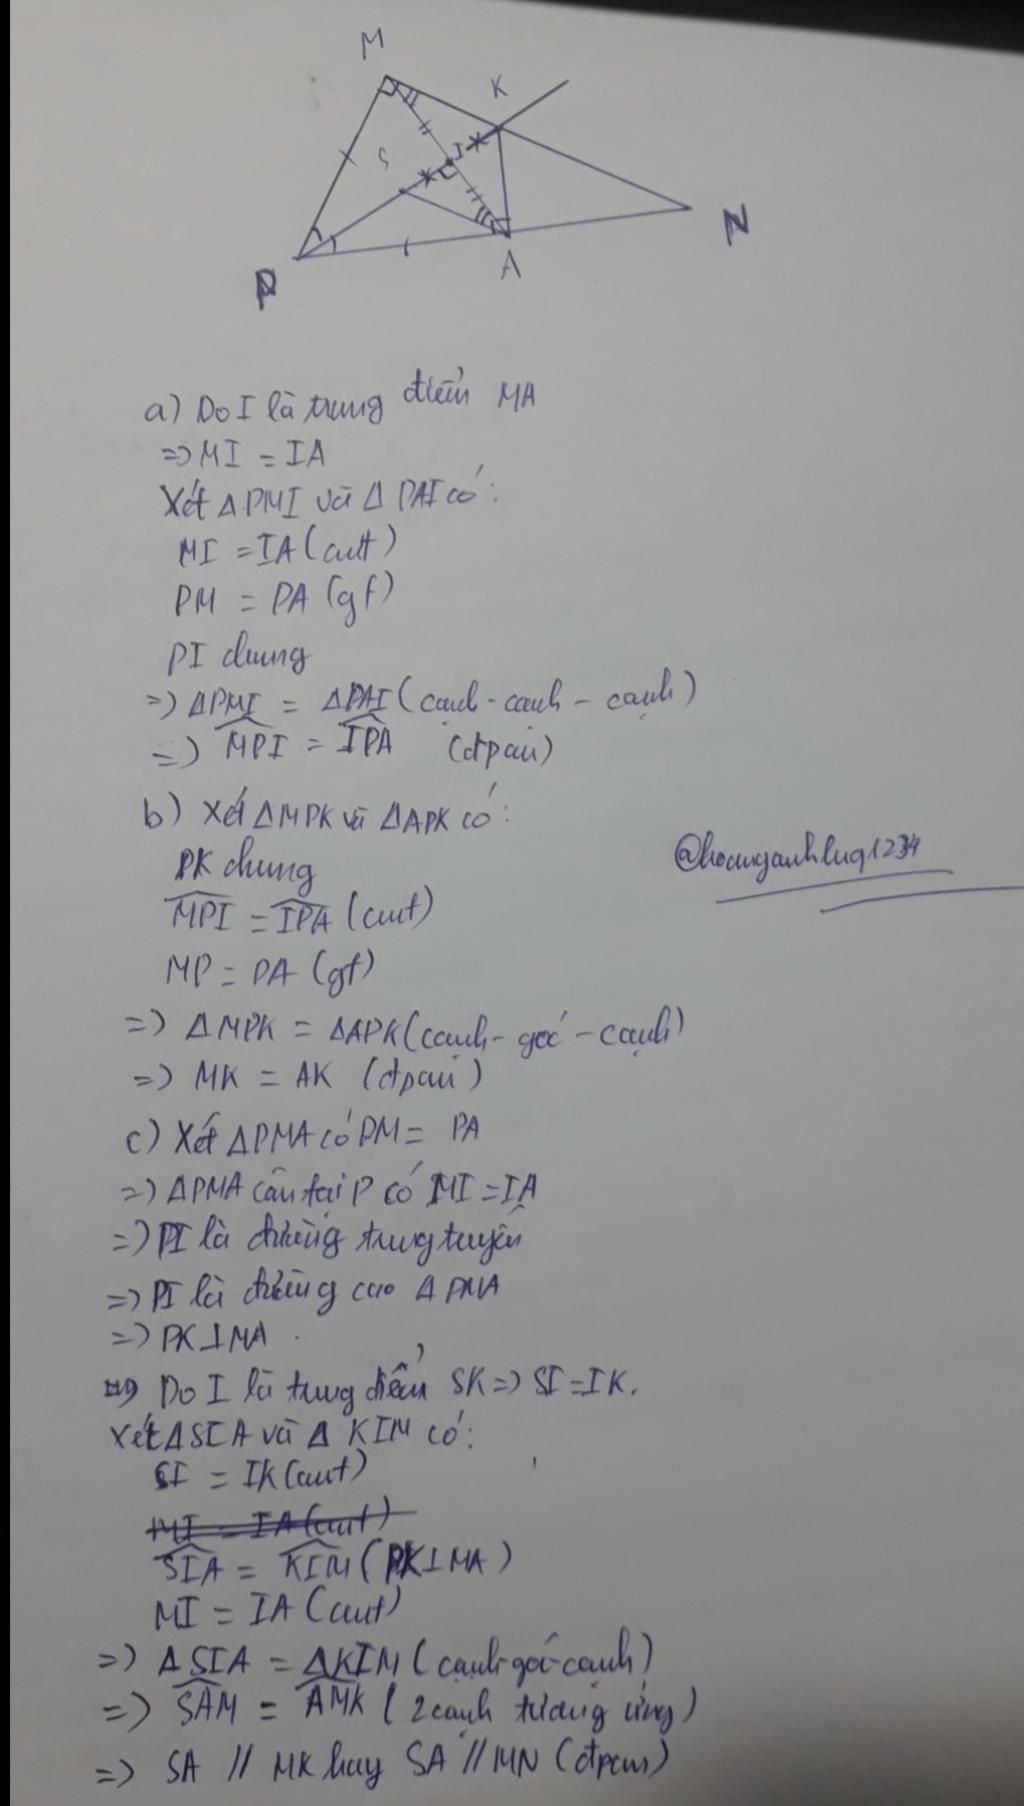 M
K
S
I
P
A
N
a) Do I là trung điểm MA
=> MI = IA
Xét ΔPMI và Δ PAI có:
MI = IA (cmt)
PM = PA (gt)
PI chung
=> ΔPMI = ΔPAI (cạnh - cạnh - cạnh)
=> \widehat{MPI} = \widehat{IPA} (đpcm)
b) Xét ΔMPK và ΔAPK có:
PK chung
\widehat{MPI} = \widehat{IPA} (cmt)
MP = PA (gt)
=> ΔMPK = ΔAPK (cạnh - góc - cạnh)
=> MK = AK (đpcm)
@hoanganhluq1234
c) Xét ΔPMA có PM = PA
=> ΔPMA cân tại P có MI = IA
=> PI là đường trung tuyến
=> PI là đường cao Δ PMA
=> PK ⊥ MA.
=> Do I là trung điểm SK => SI = IK.
Xét ΔSIA và Δ KIM có:
SI = IK (cmt)
MI = IA (cmt)
\widehat{SIA} = \widehat{KIM} (PK ⊥ MA)
MI = IA (cmt)
=> Δ SIA = ΔKIM (cạnh-góc-cạnh)
=> \widehat{SAM} = \widehat{AMK} (2 cạnh tương ứng)
=> SA // MK hay SA // MN (đpcm)